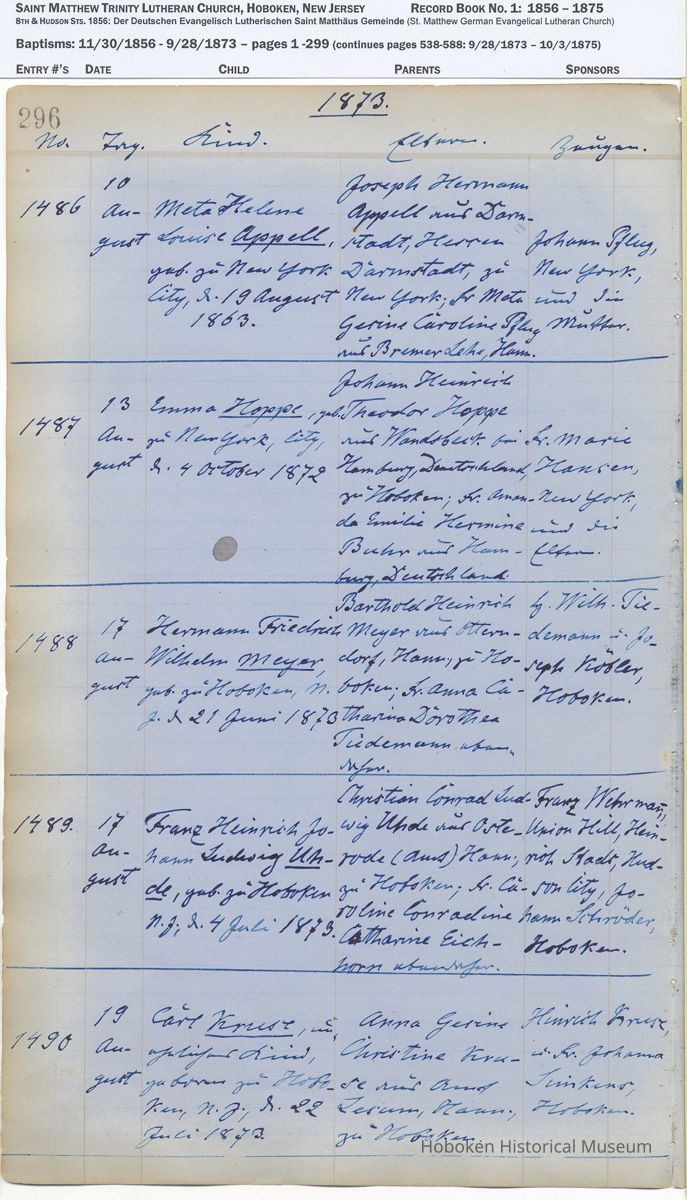 SAINT MATTHEW TRINITY LUTHERAN CHURCH, HOBOKEN, NEW JERSEY RECORD BOOK NO. 1: 1856 – 1875
8TH & HUDSON STS. 1856: Der Deutschen Evangelisch Lutherischen Saint Matthäus Gemeinde (St. Matthew German Evangelical Lutheran Church)
Baptisms: 11/30/1856 - 9/28/1873 – pages 1 -299 (continues pages 538-588: 9/28/1873 – 10/3/1875)
ENTRY #'S DATE CHILD PARENTS SPONSORS
296
1873.
No. Tag. Kind. Eltern. Zeugen.
1486
10
Au-
gust
Meta Helene
Louise Appell,
geb. zu New York
City, d. 19 August
1863.
Joseph Hermann
Appell aus Darm-
stadt, Hessen
Darmstadt, zu
New York; Fr. Meta
Gesine Caroline Pflug
aus Bremer Lehe, Hann.
Johann Pflug,
New York,
und die
Mutter.
1487
13
Au-
gust
Emma Hoppe, geb.
zu New York, City,
d. 4 October 1872
Johann Heinrich
Theodor Hoppe
aus Wandsbeck bei
Hamburg, Deutschland,
zu Hoboken; Fr. Aman-
da Emilie Hermine
Buhr aus Ham-
burg, Deutschland.
Fr. Marie
Hansen,
New York,
und die
Eltern.
1488
17
Au-
gust
Hermann Friedrich
Wilhelm Meyer,
geb. zu Hoboken, N.
J. d. 21 Juni 1873
Barthold Heinrich
Meyer aus Ottern-
dorf, Hann; zu Ho-
boken; Fr. Anna Ca-
tharina Dorothea
Tiedemann eben-
daher.
Wilh. Tie-
demann u. Jo-
seph Köbler,
Hoboken.
1489.
17
Au-
gust
Franz Heinrich Jo-
hann Ludwig Uh-
de, geb. zu Hoboken
N.J., d. 4 Juli 1873.
Christian Conrad Lud-
wig Uhde aus Oste-
rode (Amt) Hann,
zu Hoboken; Fr. Ca-
roline Conradine
Catharine Eich-
horn ebendaher.
Franz Wehrmann,
Union Hill, Hein-
rich Stadt, Hud-
son City, Jo-
hann Schröder,
Hoboken.
1490
19
Au-
gust
Carl Kruse, un-
eheliches Kind,
geboren zu Hobo-
ken, N.J., d. 22
Juli 1873.
Anna Gesine
Christine Kru-
se aus Amt
Lesum, Hann.,
zu Hoboken
Hinrich Kruse,
u. Fr. Johanna
Hoboken.
Hoboken Historical Museum